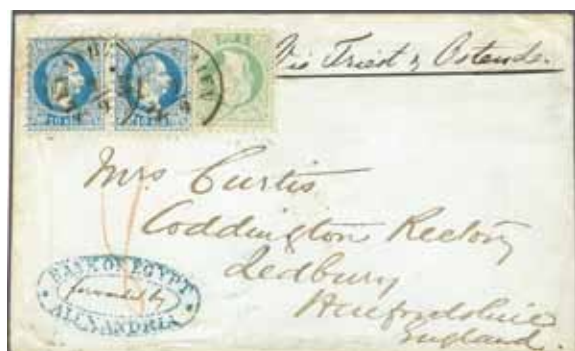 Via Triest & Ostende.
10 SLD 10 SLD
Mrs Curtis
Coddington Rectory
Ledbury
Herefordshire
England.
BANK OF EGYPT
forwarded by
ALEXANDRIA